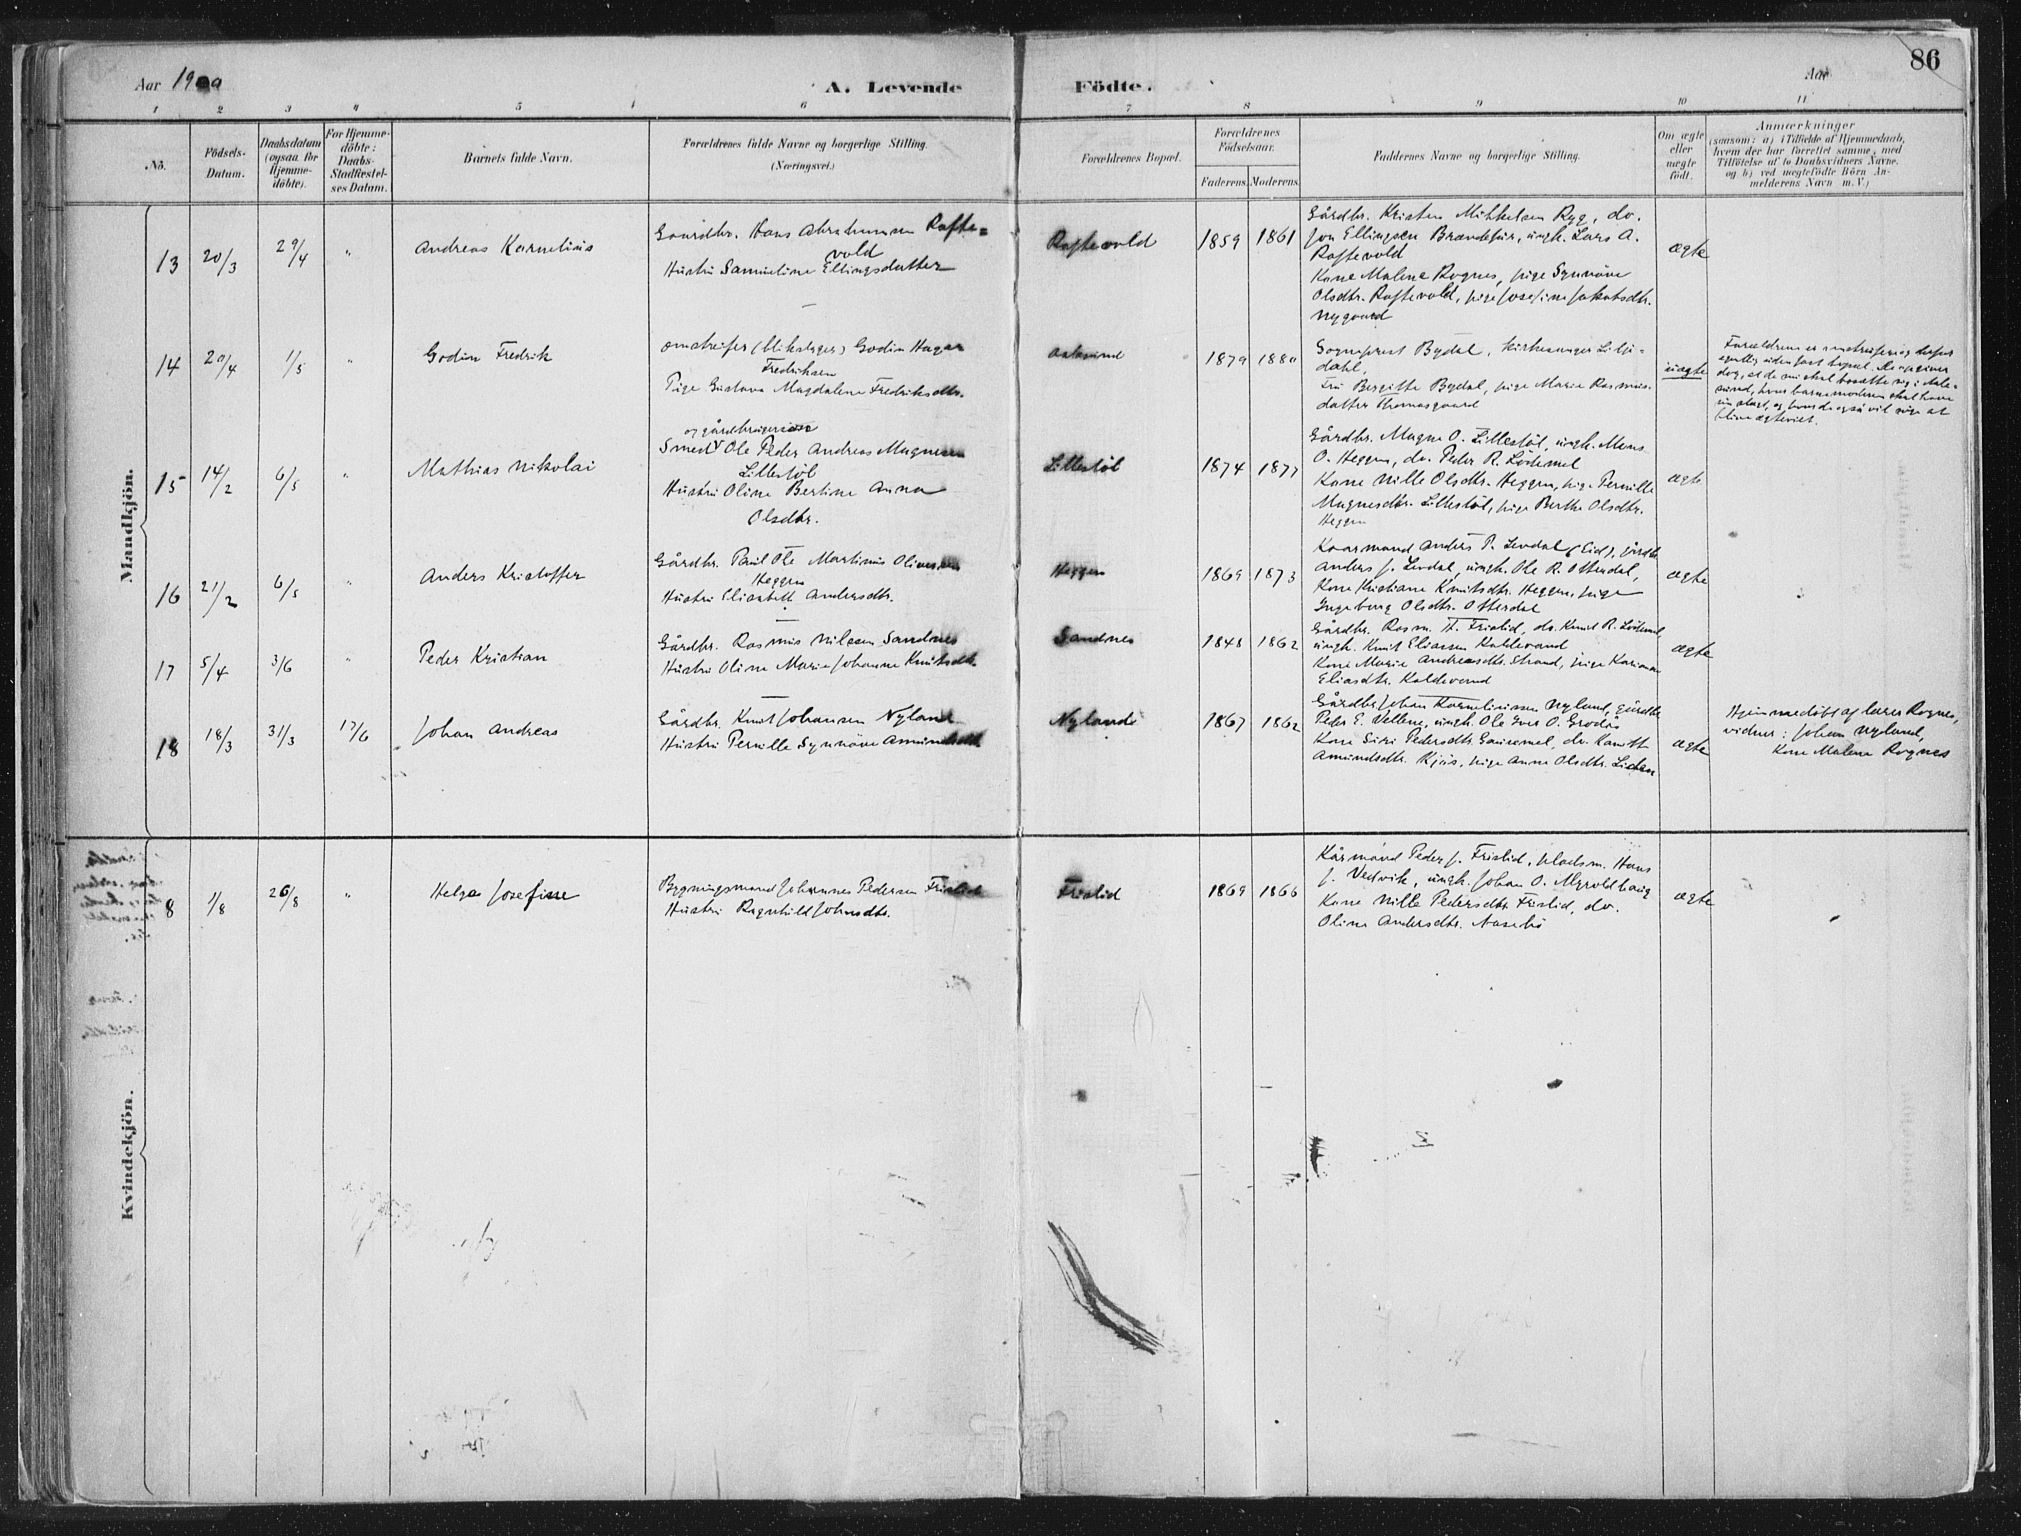 Aar 1900
A. Levende
Födte.
Aar
86
1 2 3 4 5 6 7 8 9 10 11
No.
Födsels-
Datum.
Daabsdatum
(ogsaa for
Hjemme-
döbte).
For Hjemme-
döbte:
Daabs-
Stadfæstel-
ses Datum.
Barnets fulde Navn.
Forældrenes fulde Navne og borgerlige Stilling.
(Næringsvei.)
Forældrenes Bopæl.
Forældrenes
Födselsaar.
Faderens. Moderens.
Faddernes Navne og borgerlige Stilling.
Om ægte
eller
uægte
födt.
Anmærkninger
(saasom: a) i Tilfælde af Hjemmedaab,
hvem der har forrettet samme, med
Tilföielse af to Daabsvidners Navne.
og b) ved uægtefödte Börn An-
melderens Navn m. V.)
Mandkjön.
13 20/3 29/4 " Andreas Kornelius
Gaardbr. Hans Abrahamsen Rafte-
vold
Hustru Samueline Ellingsdatter
Raftevold 1859 1861
Gårdbr. Kristen Mikkelsen Ryg, do.
Jon Ellingsen Brændefur, ungk. Lars A.
Raftevold
Kone Malene Rognes, pige Synnöve
Olsdtr. Raftevold, pige Josefine Jakobsdtr.
Nygaard
ægte
14 20/4 1/5 " Godin Fredrik
omstreifer (blikslager) Godin Hagar
Fredriksen
Pige Gustava Magdalene Fredriksdtr.
Aalesund 1879 1880
Sogneprest Bydal, kirkesanger Lilje-
dahl,
Fru Bergitte Bydal, pige Marie Rasmus-
datter Thomasgaard
uægte
Forældrene er omstreifere og derfor
egentlig uden fast bopæl. De opgiver
dog, at de nu skal bosætte sig i Aale-
sund, hvor barnemoderen skal have
sin slægt, og hvor de også vil söge at
blive ægteviet.
15 14/2 6/5 " Mathias Nikolai
og gårdbrugersön
Smed Ole Peder Andreas Magnesen
Lillestöl
Hustru Oline Bertine Anna
Olsdtr.
Lillestöl 1874 1877
Gårdbr. Magne O. Lillestöl, ungk. Mons
O. Heggen, do. Peder R. Lödemel
Kone Nille Olsdtr. Heggen, pige Pernille
Magnesdtr. Lillestöl, pige Berthe Olsdtr.
Heggen
ægte
16 21/2 6/5 " Anders Kristoffer
Gårdbr. Paul Ole Martinus Olivessen
Heggen
Hustru Elisabeth Andersdtr.
Heggen 1869 1873
Kaarmand Anders P. Levdal (Eid), gårdbr.
Anders J. Levdal, ungk. Ole R. Otterdal,
Kone Kristiane Knutsdtr. Heggen, pige
Ingeborg Olsdtr. Otterdal
ægte
17 5/4 3/6 " Peder Kristian
Gårdbr. Rasmus Nilssen Sandnes
Hustru Oline Marie Johanne Knutsdtr.
Sandnes 1848 1862
Gårdbr. Rasm. H. Frislid, do. Knut R. Lödemel,
ungk. Knut Eliassen Kaldevand
Kone Marie Andreasdtr. Strand, pige Karianne
Eliasdtr. Kaldevand
ægte
18 18/3 31/3 17/6 Johan Andreas
Gårdbr. Knut Johansen Nyland
Hustru Pernille Synnöve Amundsdtr.
Nylande 1867 1862
Gårdbr. Johan Korneliussen Nyland, gårdbr.
Peder E. Vellene, ungk. Ole Iver O. Grodås
Kone Siri Pedersdtr. Gausemel, do.
Amundsdtr. Kjös, pige Anne Olsdtr.
ægte
Hjemmedöbt af lærer Rognes,
vidner: Johan Nyland,
Kone Malene Rognes
Kvindekjön.
8 1/8 26/8 " Helga Josefine
Bygningsmand Johannes Pedersen Frislid
Hustru Ragnhild Johnsdtr.
Frislid 1869 1866
Kårmand Peder J. Frislid, pladsm. Hans
J. Vedvik, ungk. Johan O. Myroldhaug
Kone Nille Pedersdtr. Frislid, do.
Oline Andersdtr. Nosebö
ægte